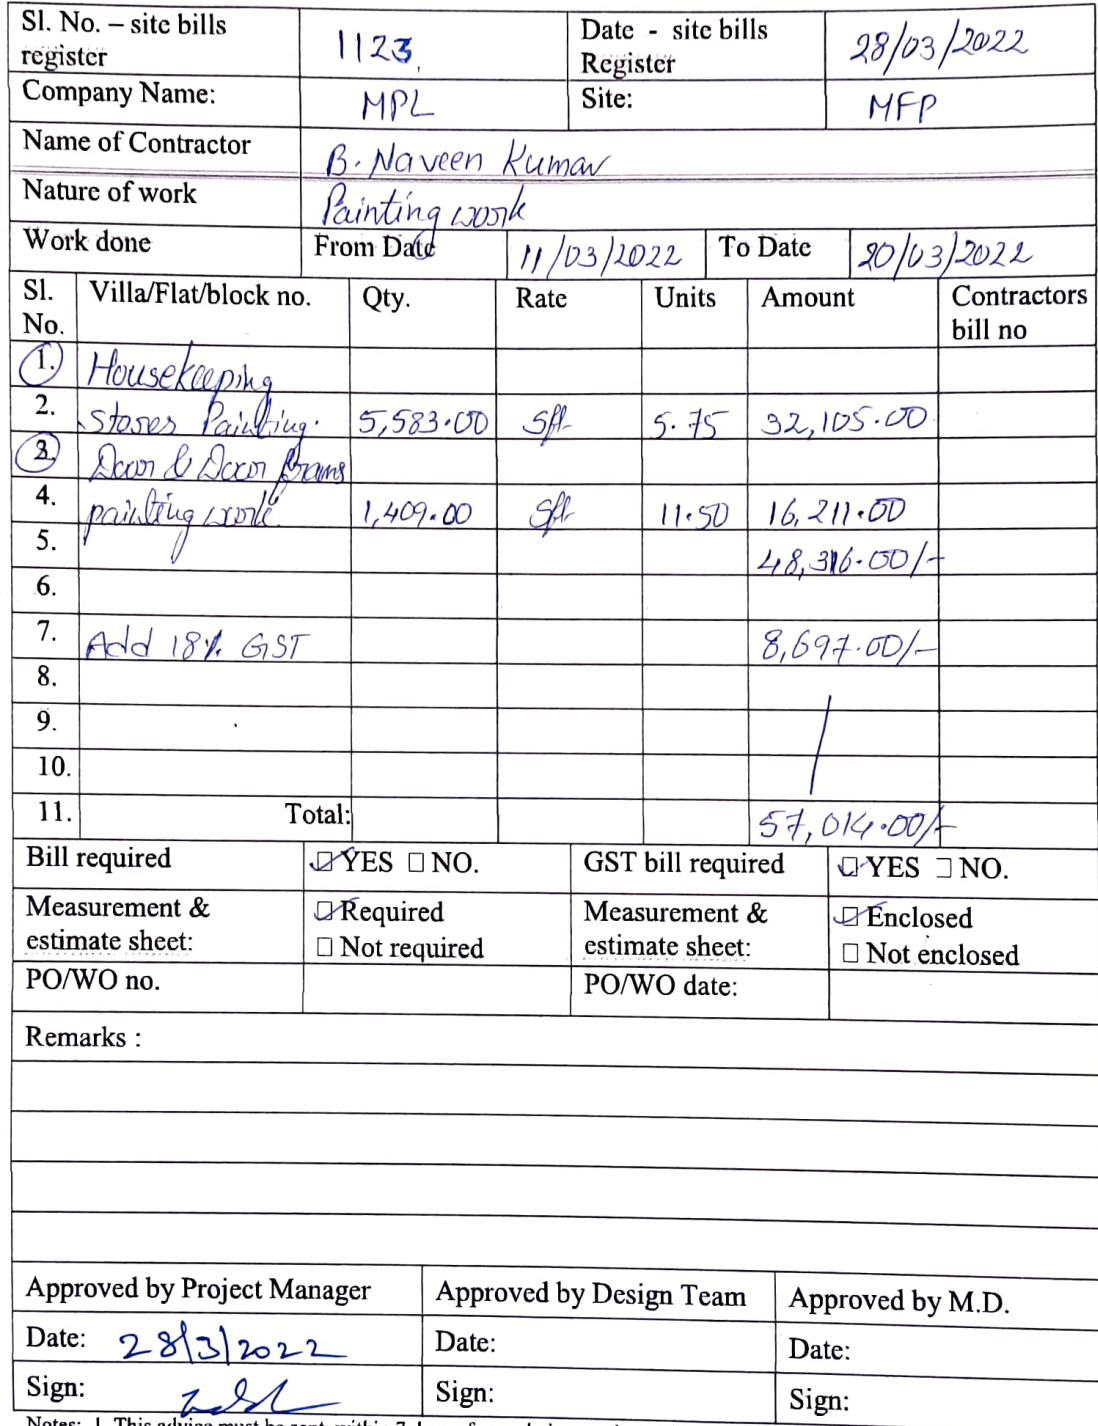 Sl. No. – site bills register 1123 Date - site bills Register 28/03/2022
Company Name: MPL Site: MFP
Name of Contractor B. Naveen Kumar
Nature of work Painting work
Work done From Date 11/03/2022 To Date 20/03/2022
Sl. No. Villa/Flat/block no. Qty. Rate Units Amount Contractors bill no
1. Housekeeping
2. stores Painting. 5,583.00 Sft 5.75 32,105.00
3. Door & Door Frams
4. painting work 1,409.00 Sft 11.50 16,211.00
5. 48,316.00/-
6.
7. Add 18% GST 8,697.00/-
8.
9.
10.
11. Total: 57,014.00/-
Bill required ☑ YES ☐ NO. GST bill required ☑ YES ☐ NO.
Measurement & estimate sheet: ☑ Required ☐ Not required Measurement & estimate sheet: ☑ Enclosed ☐ Not enclosed
PO/WO no. PO/WO date:
Remarks :
Approved by Project Manager Approved by Design Team Approved by M.D.
Date: 28/3/2022 Date: Date:
Sign: Sign: Sign:
Notes: 1. This advise must be sent within 7 days